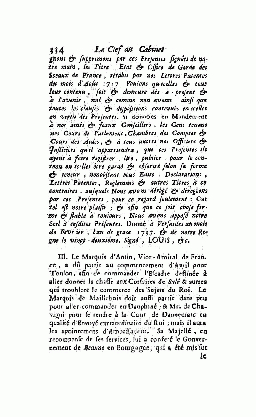 354 La Clef du Cabinet
gnons & supprimons par ces Presentes signées de notre main, les Titre, Etat & Office de Garde des
Sceaux de France, rétabli par nos Lettres Patentes
du mois d'Août 1727. Voulons que celles & tout
leur contenu, soit & demeure dès à present &
à l'avenir, nul & comme non avenu ainsi que
toutes les clauses & dispositions contenuës en celles
au profit des Presentes. SI DONNONS EN MANDEMENT
à nos amés & feaux Conseillers, les Gens tenans
nos Cours de Parlement, Chambres des Comptes &
Cours des Aides, & à tous autres nos Officiers &
Justiciers qu'il appartiendra, que ces Presentes ils
ayent à faire regîtrer, lire, publier, pour le contenu en icelles être gardé & observé selon sa forme
& teneur, nonobstant tous Edits, Declarations,
Lettres Patentes, Reglemens & autres Titres à ce
contraires; ausquels Nous avons dérogé & dérogeons
par ces Presentes, pour ce regard seulement: Car
tel est notre plaisir; & afin que ce soit chose ferme & stable à toûjours, Nous avons apposé notre
Scel à cesdites Presentes. Donné à Versailles au mois
de Fevrier, l'an de grace 1737. & de notre Regne le vingt-deuxième. Signé, LOUIS, &c.
III. Le Marquis d'Antin, Vice-Amiral de France, a dû partir au commencement d'Avril pour
Toulon, afin de commander l'Escadre destinée à
aller donner la chasse aux Corsaires de Salé & autres
qui troublent le commerce des Sujets du Roi. Le
Marquis de Maillebois doit aussi partir dans peu
pour aller commander en Dauphiné; & Mr. de Chavigni pour se rendre à la Cour de Dannemarc en
qualité d'Envoyé extraordinaire du Roi; mais il aura
les apointemens d'Ambassadeur. Sa Majesté, en
recompense de ses services, lui a conferé le Gouvernement de Beaune en Bourgogne, qui a été mis sur
le